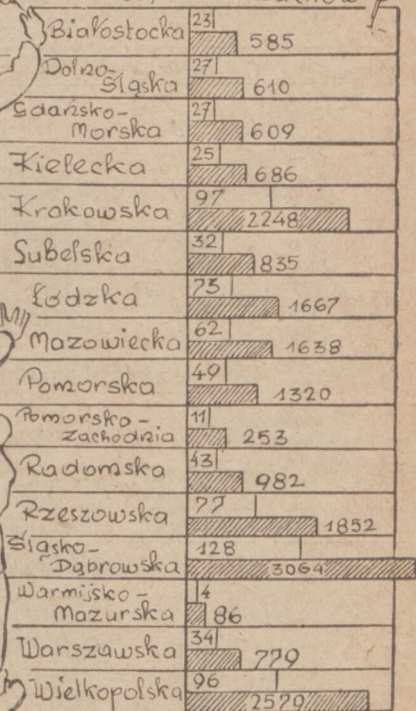 Białostocka 23 585
Dolno-
Śląska 27 610
Gdańsko-
Morska 27 609
Kielecka 25 686
Krakowska 97 2248
Lubelska 32 835
Łódzka 73 1667
Mazowiecka 62 1638
Pomorska 49 1320
Pomorsko-
Zachodnia 11 253
Radomska 43 982
Rzeszowska 77 1852
Śląsko-
Dąbrowska 128 3064
Warmijsko-
Mazurska 4 86
Warszawska 34 779
Wielkopolska 96 2579